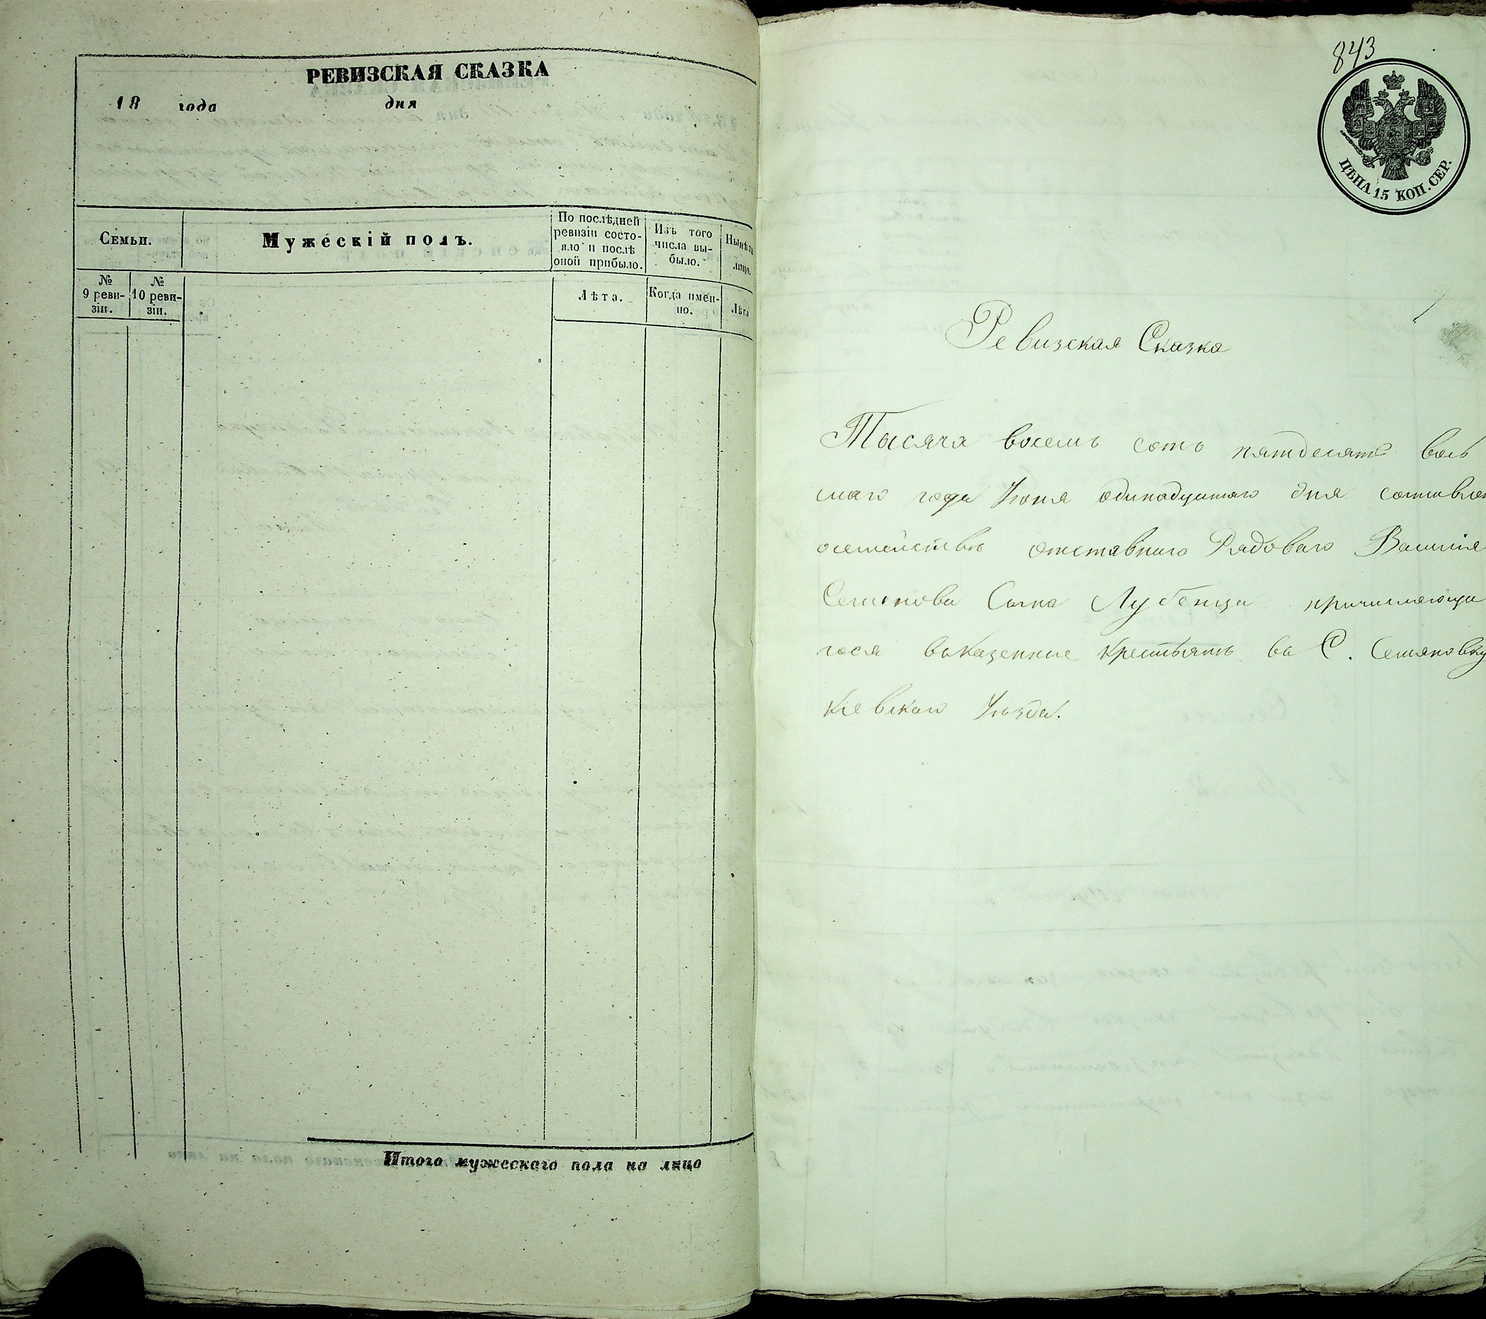 РЕВИЗСКАЯ СКАЗКА
18 года дня
Семьи.
Мужескій полъ.
По послѣдней
ревизіи состо-
яло и послѣ
оной прибыло.
Изъ того
числа вы-
было.
Нынѣ
лицо.
№
9 реви-
зіи.
№
10 реви-
зіи.
Лѣта.
Когда имен-
но.
Лѣта
Итого мужескаго пола на лицо
843
ЦѢНА 15 КОП. СЕР.
Ревизская Сказка
Тысяча восемь сотъ пятдесятъ вось
маго года Іюня одинадцатаго дня составлен
осемействѣ отставнаго Рядоваго Василія
Семенова Сына Лубенца причисляюща
гося вказенные крестьяне въ С. Семяновку
Кіевскаго Уѣзда.